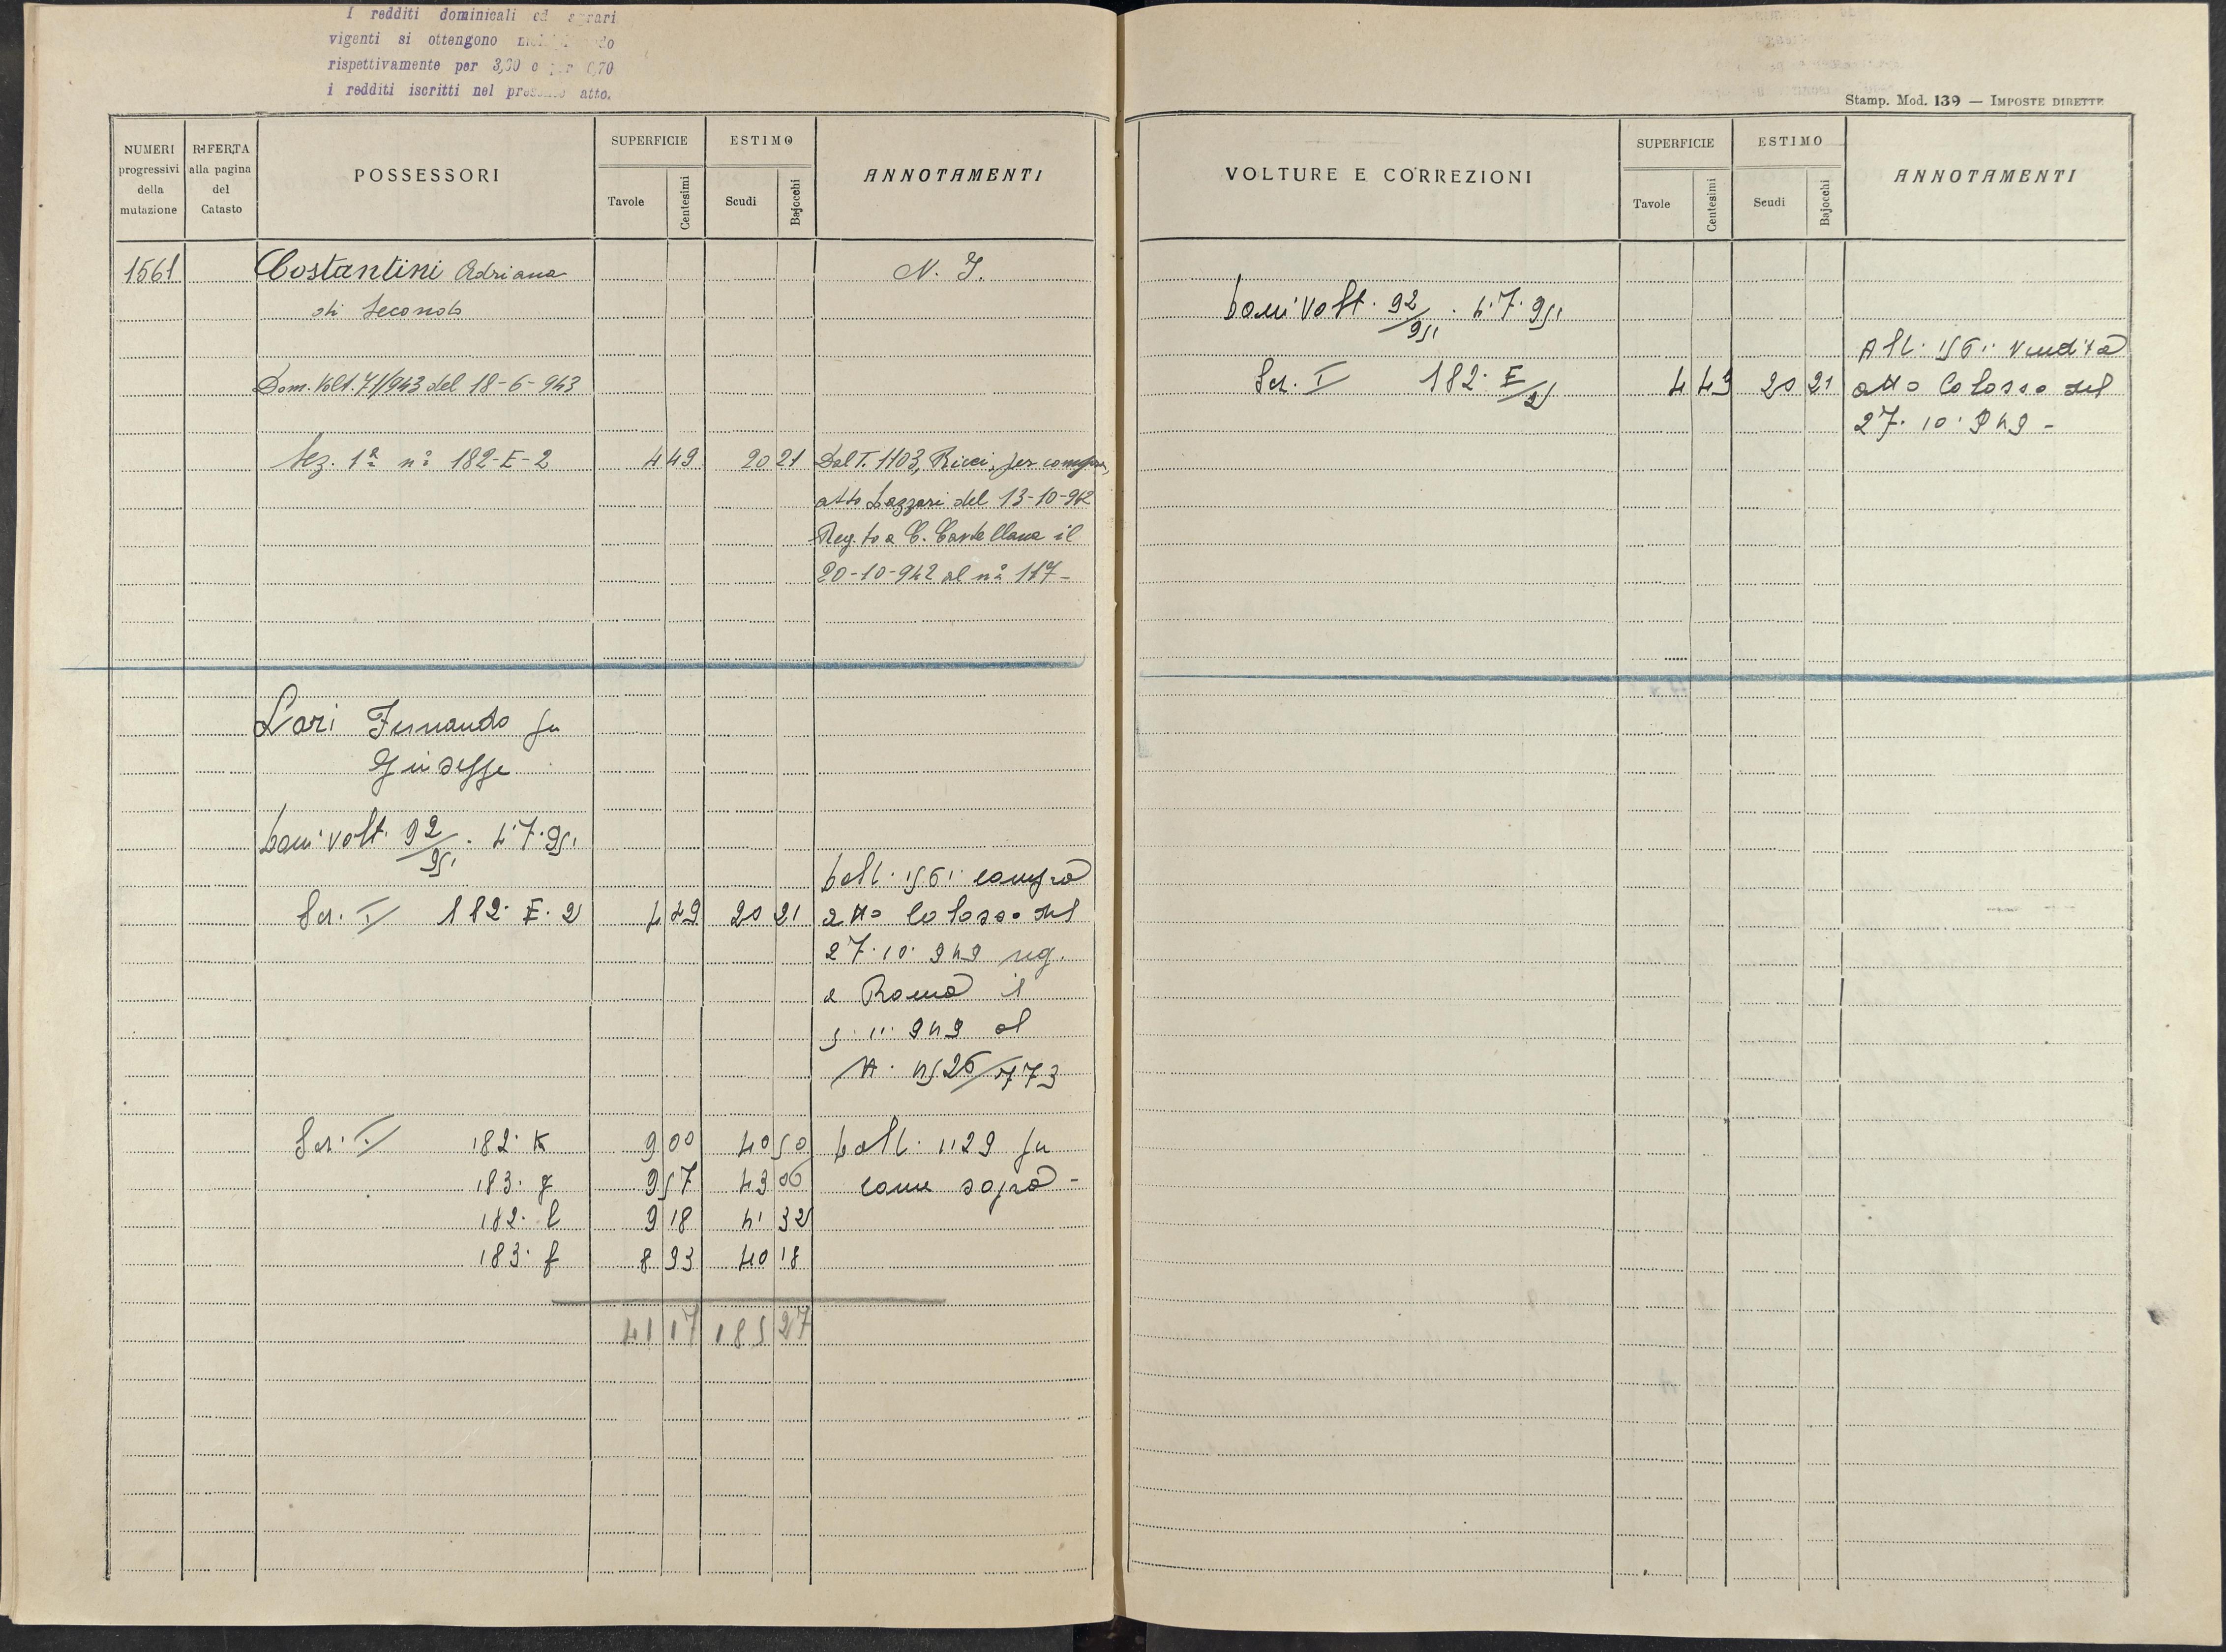 I redditi dominicali ed agrari
vigenti si ottengono
rispettivamente per 3,00 e per 0,70
i redditi iscritti nel presente atto.
NUMERI progressivi della mutazione
RIFERTA alla pagina del Catasto
POSSESSORI
SUPERFICIE
Tavole Centesimi
ESTIMO
Scudi Bajocchi
ANNOTAMENTI
1561 Costantini Adriana N. I.
di Secondo
Dom. Volt. 71/943 del 18-6-943
Sez. 1ª nº 182-E-2 4 49 20 21 Dal T. 1103, Ricci, per compra,
atto Lazzari del 13-10-942
Reg.to a C. Castellana il
20-10-942 al nº 117-
Lori Fernando fu
Giuseppe
Dom. Volt. 92/951. 4.7.951
Dall. 1561 compra
Sez. I 182. E. 2 4 49 20 21 atto Colosso del
27.10.949 reg.
a Roma il
5.11.949 al
N. 4526/773
Sez. I 182. K 9 00 40 50 Dall. 1129 fu
183. g 9 57 43 06 come sopra -
182. l 9 18 41 32
183. f 8 93 40 18
41 17 185 27
Stamp. Mod. 139 — IMPOSTE DIRETTE
VOLTURE E CORREZIONI
SUPERFICIE
Tavole Centesimi
ESTIMO
Scudi Bajocchi
ANNOTAMENTI
Dom. Volt. 92/951. 4.7.951
All. 1561 Vendita
Sez. I 182. E/2 4 49 20 21 atto Colosso del
27.10.949 -